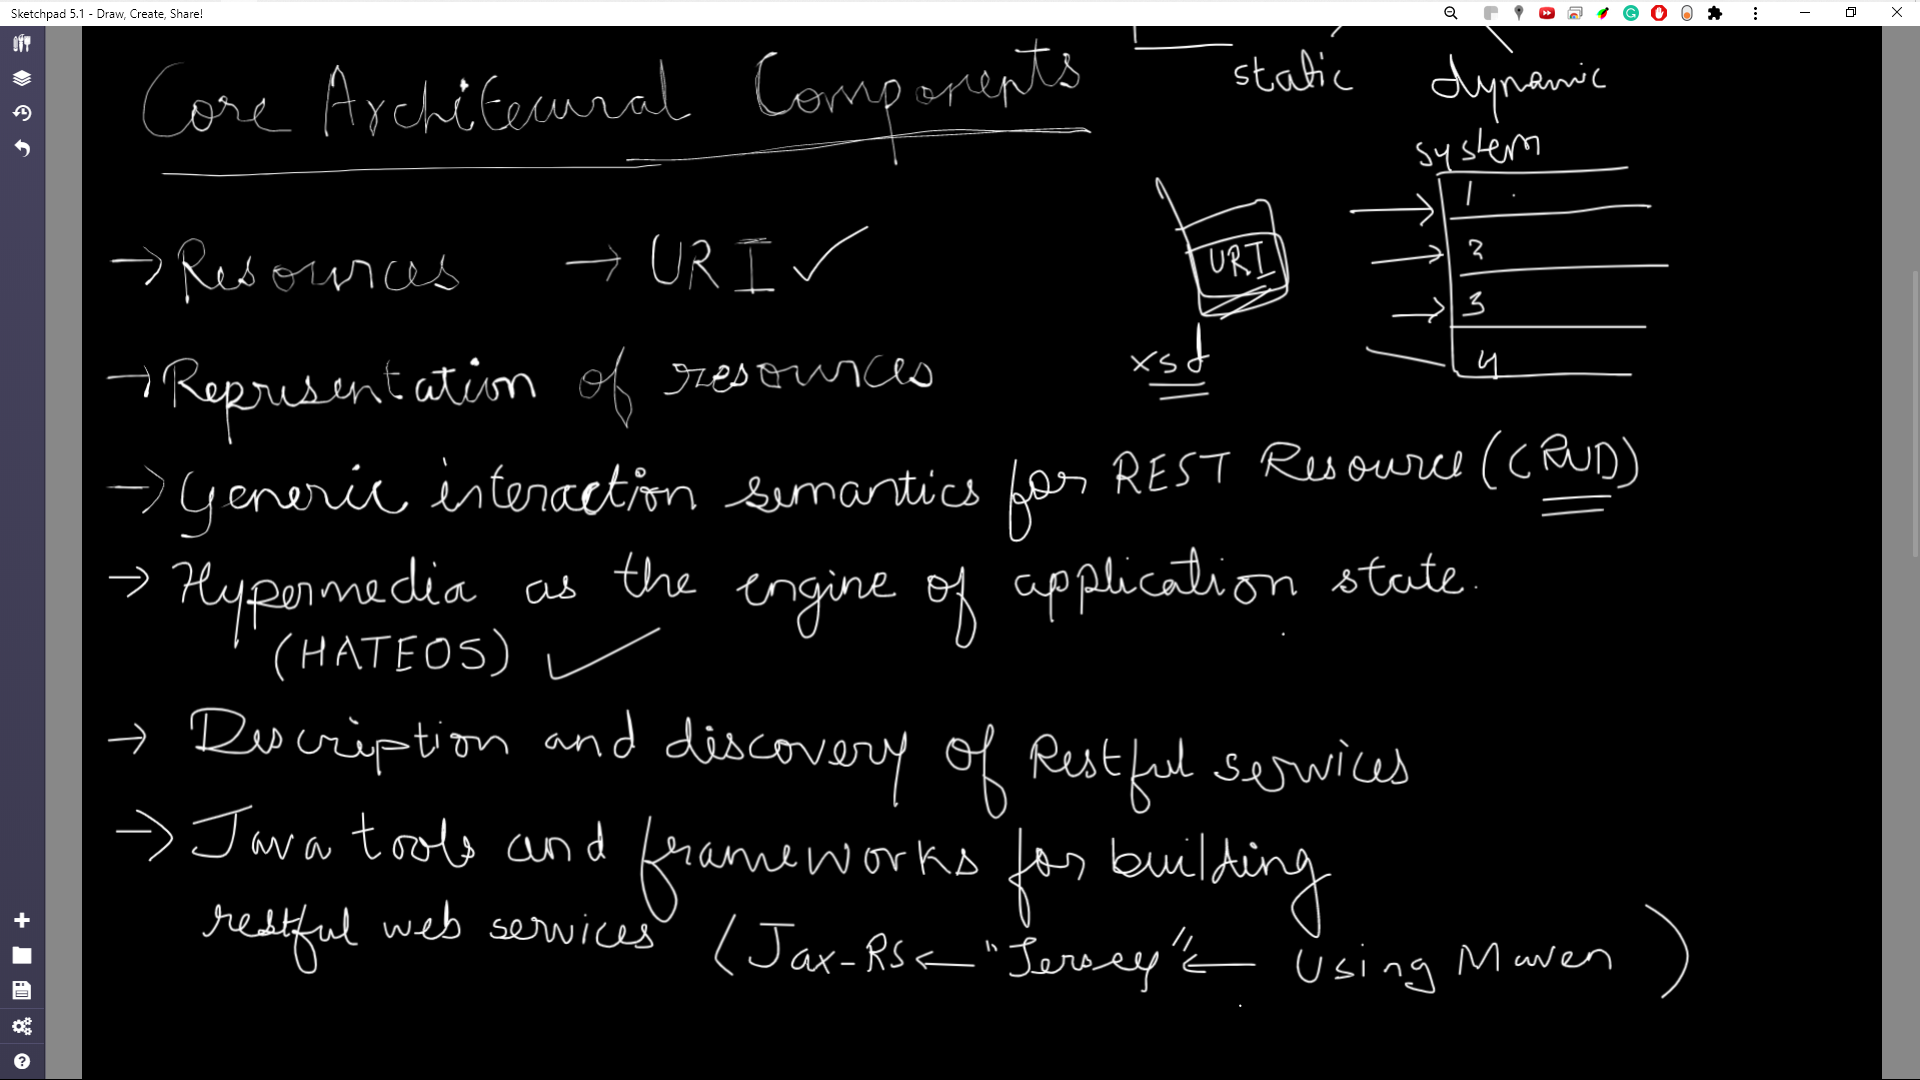 Sketchpad 5.1 - Draw, Create, Share!
static dynamic
Core Architecural Components
system
1
2
3
4
→ Resources → URI ✓
URI
xsd
→ Representation of resources
→ Generic interaction semantics for REST Resource (CRUD)
→ Hypermedia as the engine of application state.
(HATEOS) ✓
→ Description and discovery of Restful services
→ Java tools and frameworks for building
restful web services (Jax-RS ← "Jersey" ← Using Maven)